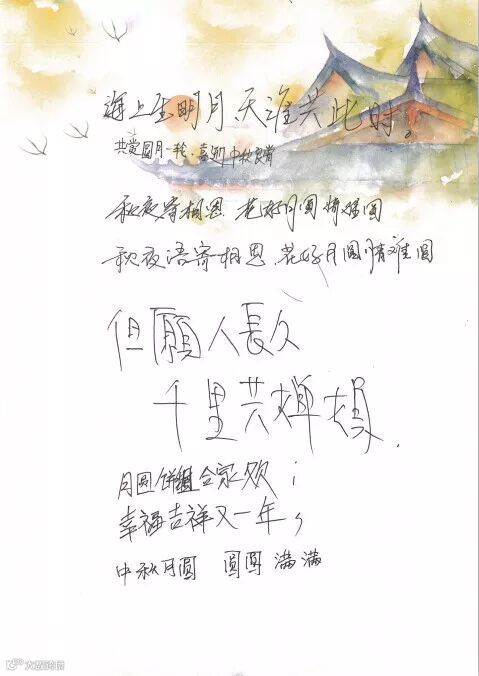 海上生明月、天涯共此时。
共赏圆月一轮、喜迎中秋良宵
秋夜寄相思 花好月圆情难圆
秋夜语寄相思、花好月圆情难圆
但願人長久
千里共婵娟.
月圆饼圆合家欢;
幸福吉祥又一年,
中秋月圆 圆圆满满